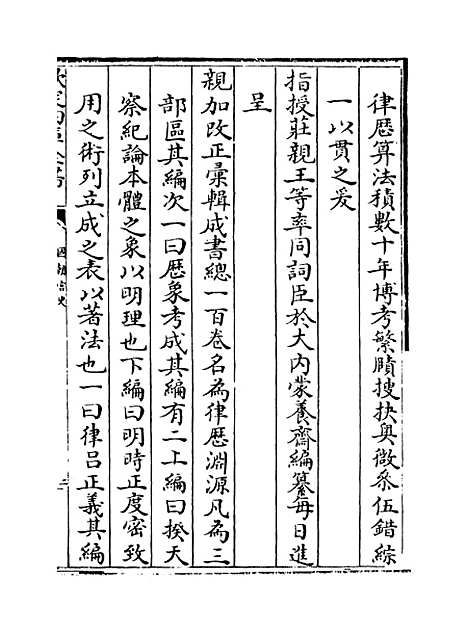 律歴算法積數十年博考繁賾搜抉奥微叅伍錯綜
一以貫之爰
指授莊親王等率同詞臣於大内蒙養齋編纂每日進
呈
親加改正彙輯成書總一百卷名為律歴淵源凡為三
部區其編次一曰歴象考成其編有二上編曰揆天
察紀論本體之象以明理也下編曰明時正度密致
用之術列立成之表以著法也一曰律吕正義其編